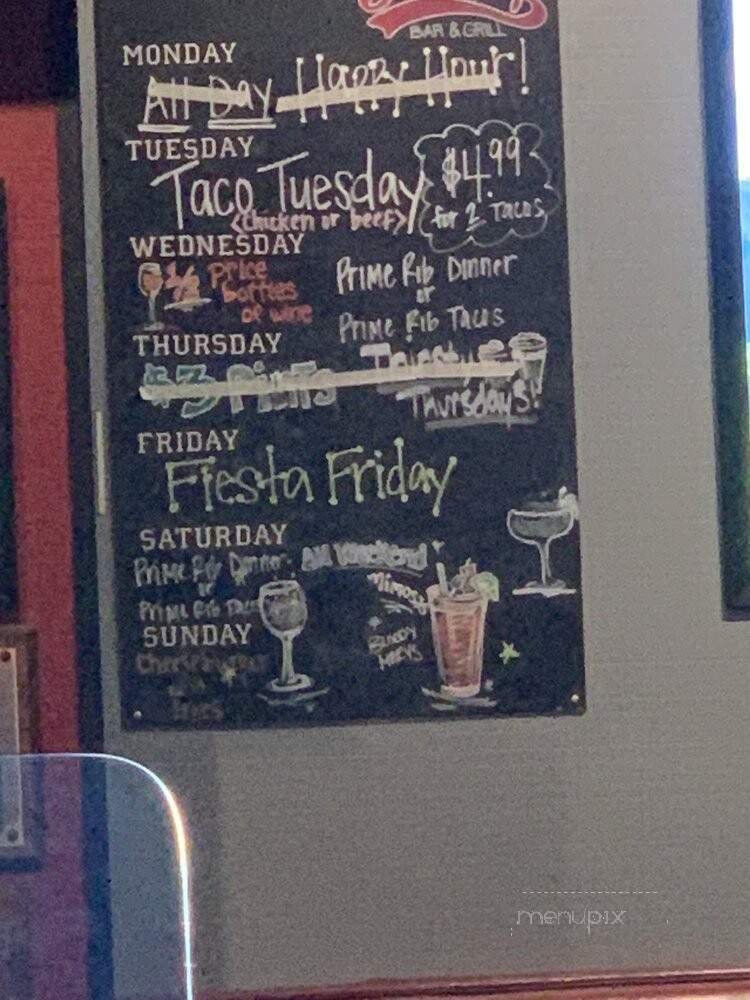 BAR & GRILL
MONDAY
All Day Happy Hour!
TUESDAY
Taco Tuesday
<Chicken or beef>
$4.99
for 2 Tacos
WEDNESDAY
1/2 Price
bottles
of wine
Prime Rib Dinner
or
Prime Rib Tacos
THURSDAY
$3 Pints
Thirsty
Thursdays!
FRIDAY
Fiesta Friday
SATURDAY
Prime Rib Dinner
or
Prime Rib Tacos
All Weekend
Mimosas
Bloody
Marys
SUNDAY
Fries
menupix